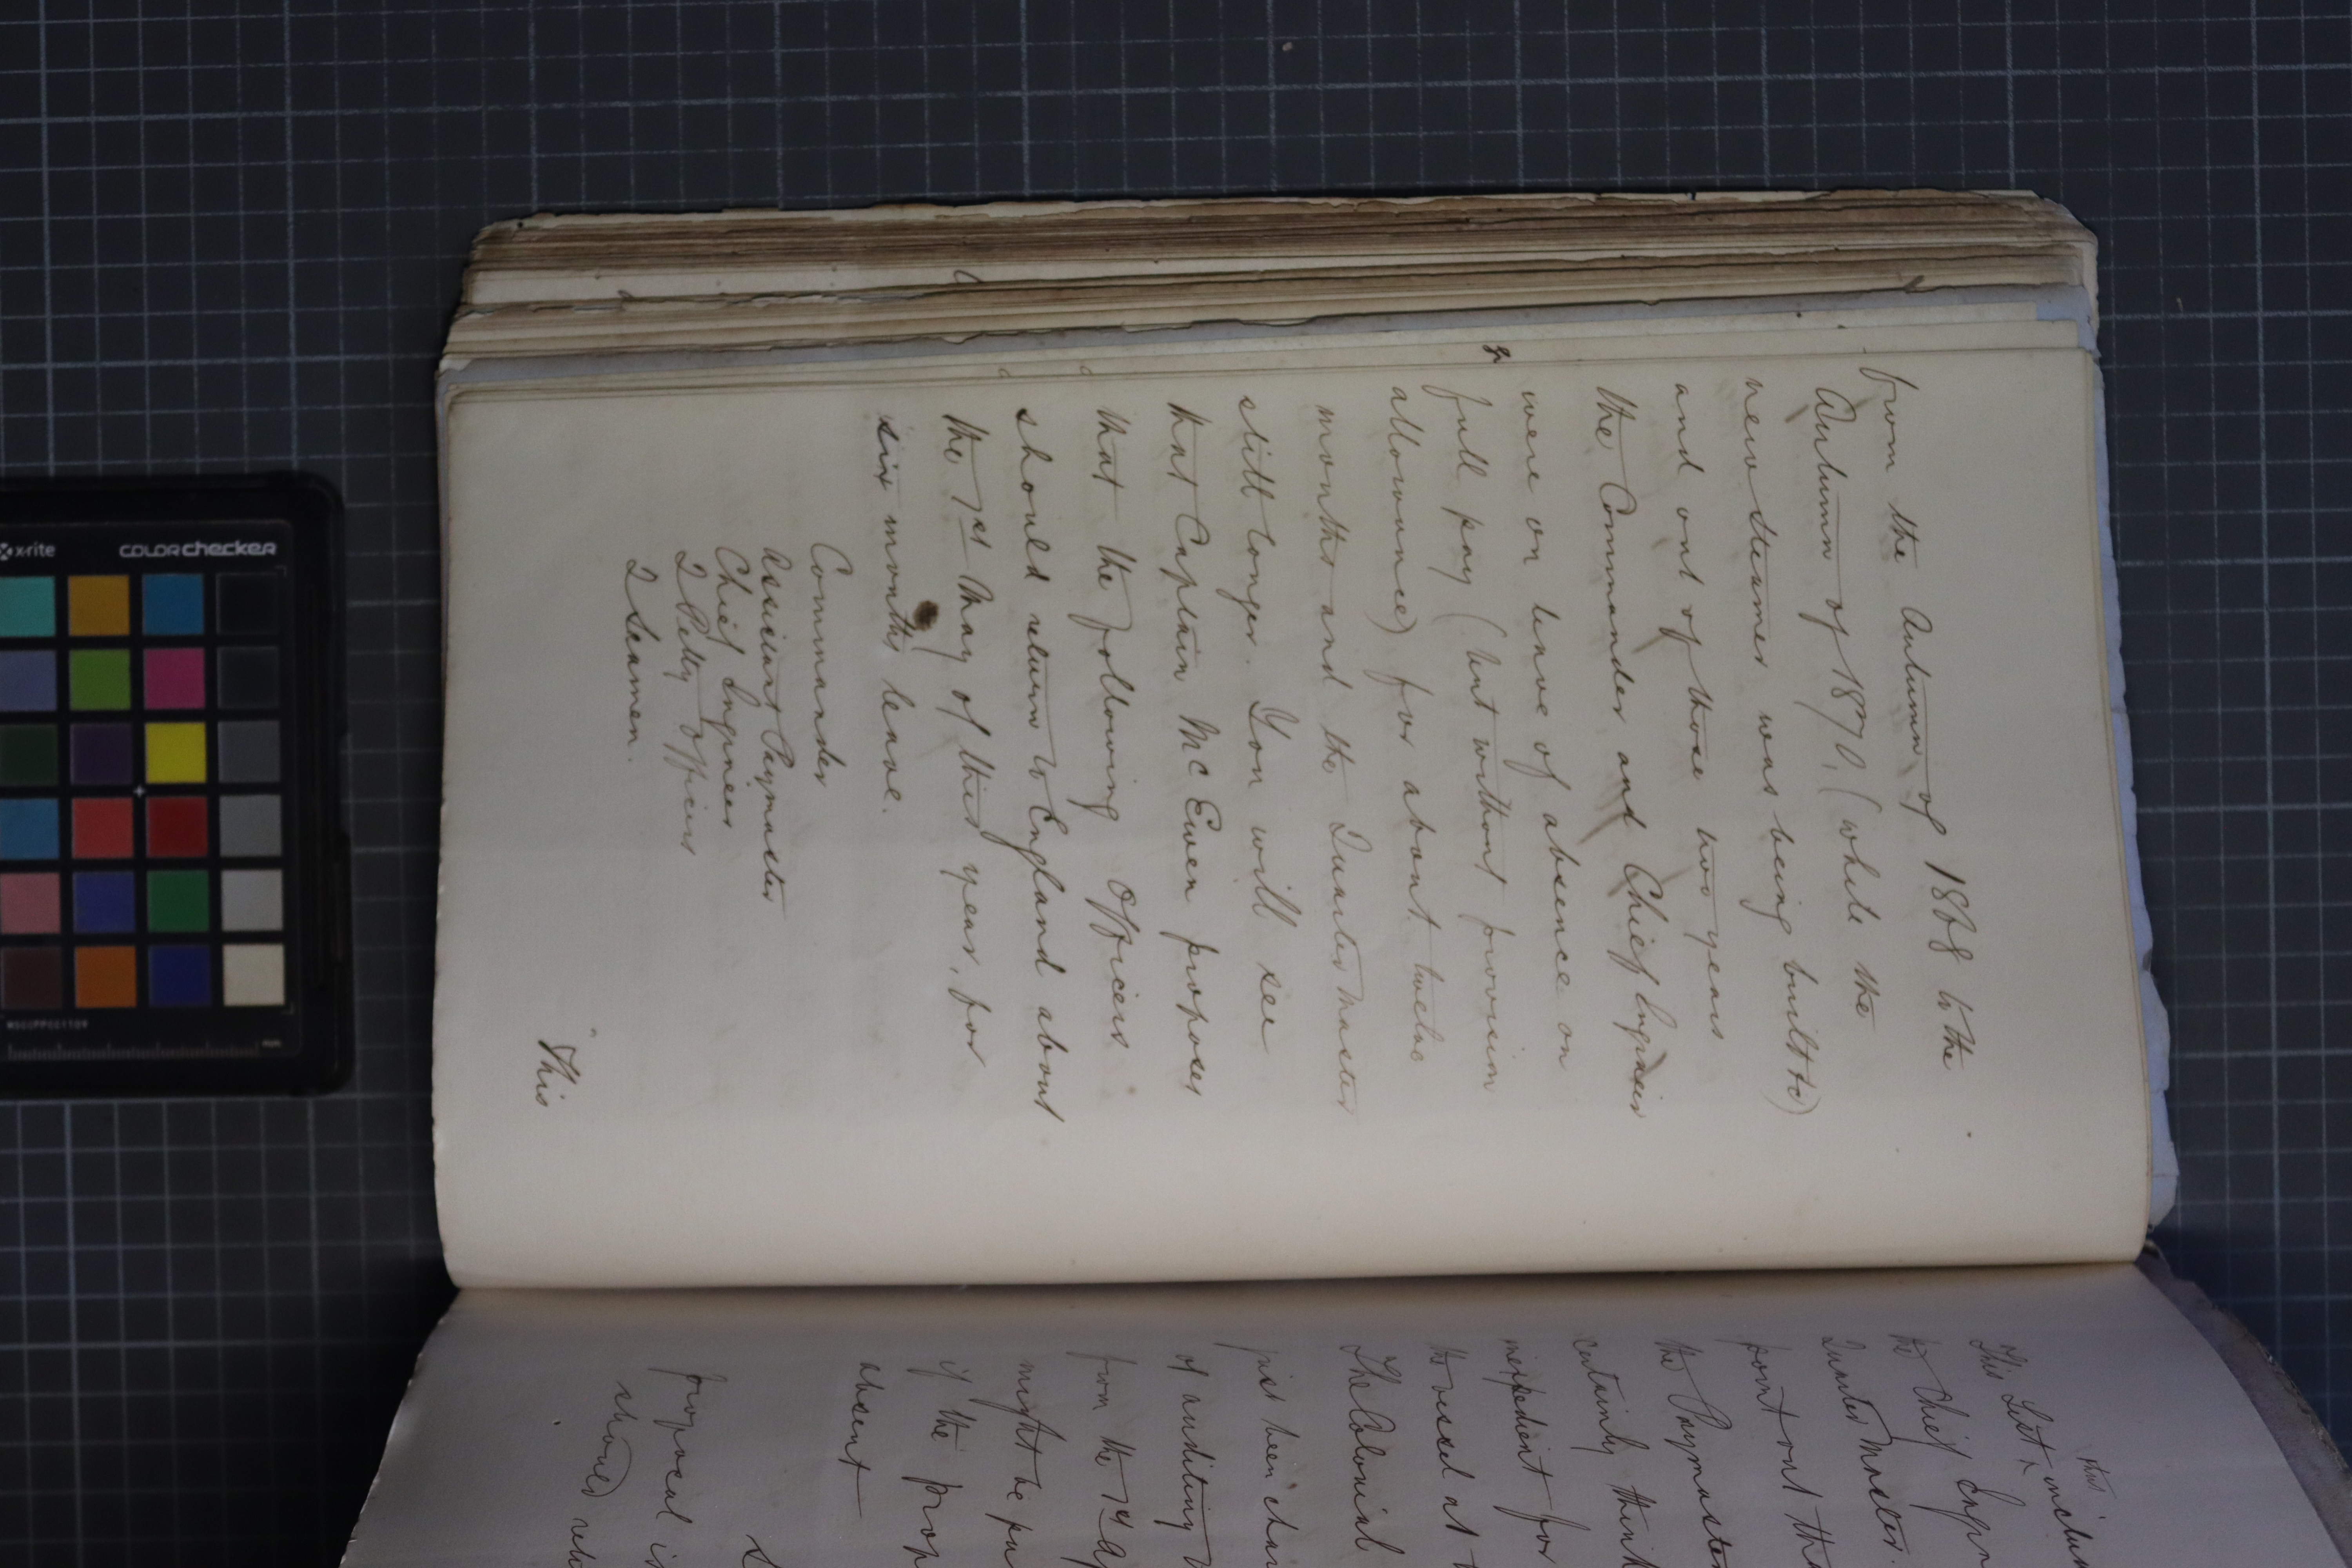 from the Autumn of 1868 to the
Autumn of 1870, (while the
new steamer was being built &c)
and out of those two years
the Commander and Chief Engineer
were on leave of absence on
full pay (but without provision
allowance) for about twelve
months and the Quarter Master
still longer. You will see
that Captain McEwen proposes
that the following Officers
should return to England about
the 1st May of this year, for
six months leave.
Commander
Assistant Paymaster
Chief Engineer
2 Petty Officers
2 Seamen.
"This
thus
This List, includ
the Chief Engin
Quarter Master.
point out tha
the Paymaster
certainly think
inexpedient for
the vessel at
The Colonial
just been char
of auditing
from the 1st Ap
might be pu
if the prop
absent
proposal is
should retu
x-rite
colorchecker